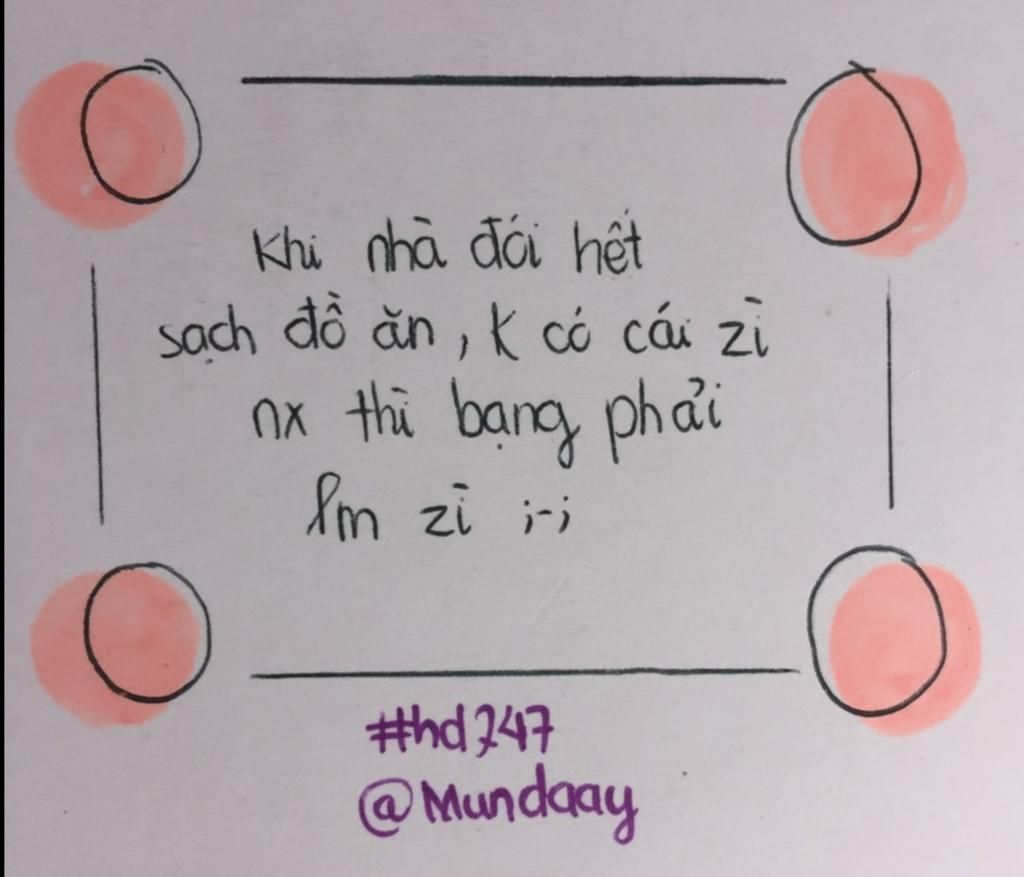 Khi nhà đói hết
sạch đồ ăn, k có cái zì
nx thì bạng phải
lm zì ;-;
#hd247
@Mundaay